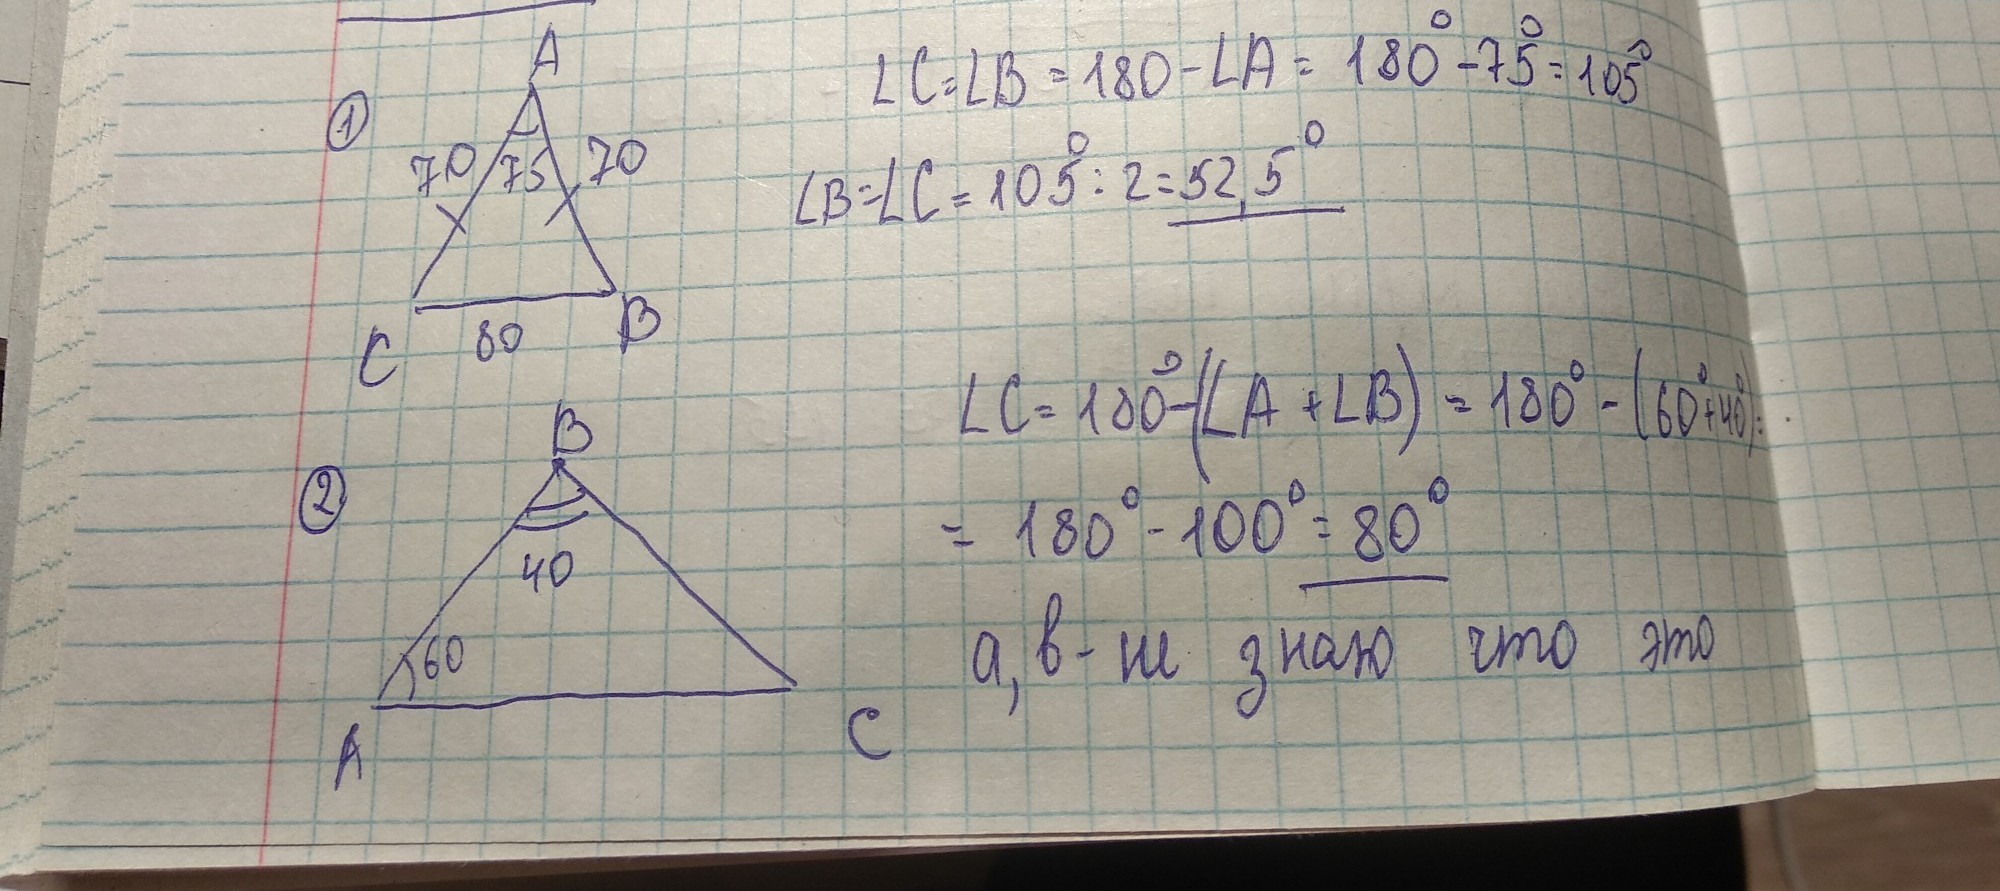 1
A
70
75
70
C
80
B
∠C=∠B=180-∠A=180°-75°=105°
∠B=∠C=105°:2=52,5°
2
B
40
60
A
C
∠C=180°-(∠A+∠B)=180°-(60°+40°)=
=180°-100°=80°
а, в - не знаю что это